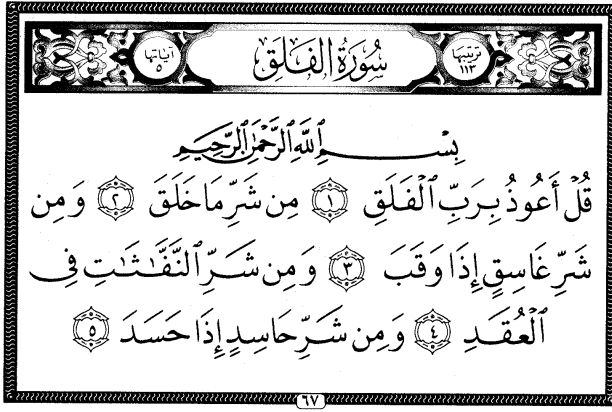 ترتيبها ١١٣ سُورَةُ الْفَلَقِ آياتها ٥
بِسْمِ اللَّهِ الرَّحْمَٰنِ الرَّحِيمِ
قُلْ أَعُوذُ بِرَبِّ الْفَلَقِ ١ مِن شَرِّ مَا خَلَقَ ٢ وَمِن
شَرِّ غَاسِقٍ إِذَا وَقَبَ ٣ وَمِن شَرِّ النَّفَّاثَاتِ فِي
الْعُقَدِ ٤ وَمِن شَرِّ حَاسِدٍ إِذَا حَسَدَ ٥
٦٧